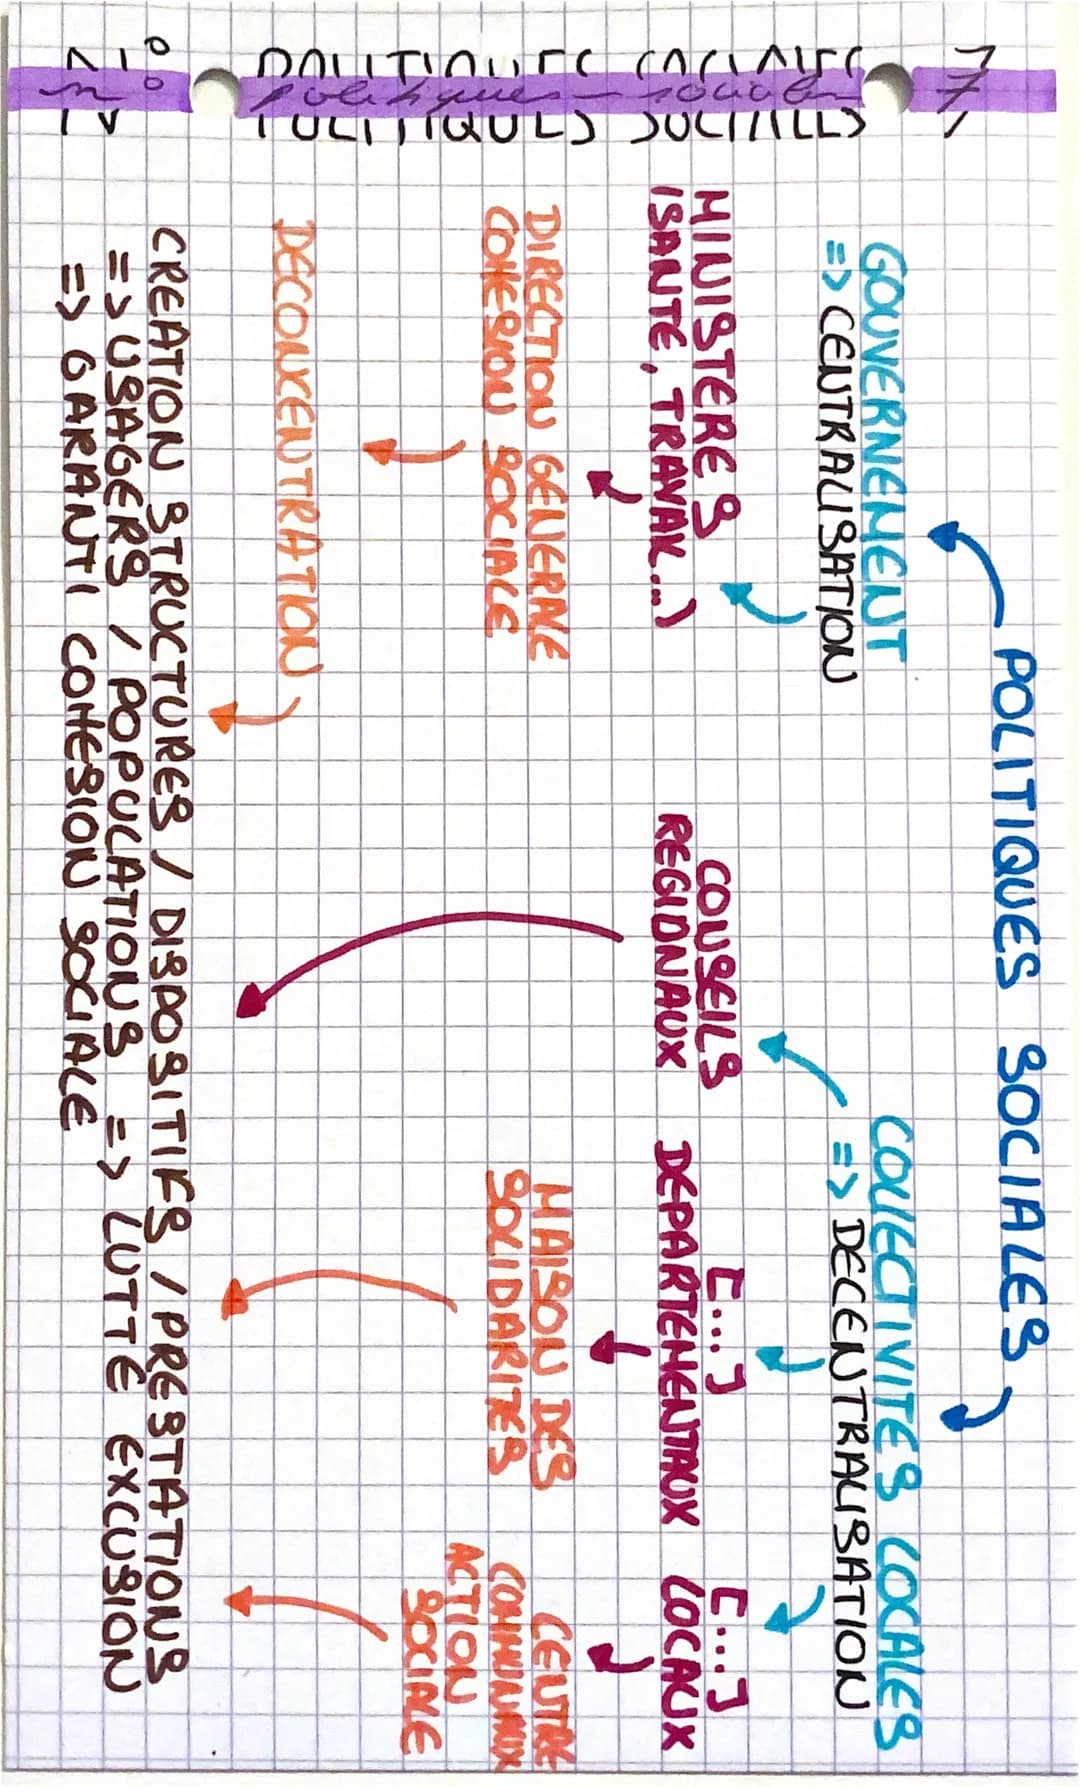 N° 2 POLITIQUES SOCIALES 7
POLITIQUES SOCIALES
GOUVERNEMENT
=> CENTRALISATION
COLLECTIVITES LOCALES
=> DECENTRALISATION
MINISTERES
(SANTE, TRAVAIL...)
CONSEILS
REGIONAUX
[...]
DEPARTEMENTAUX
[...]
LOCAUX
DIRECTION GENERALE
COHESION SOCIALE
MAISON DES
SOLIDARITES
CENTRE
COMMUNAUX
ACTION
SOCIALE
DECONCENTRATION
CREATION STRUCTURES / DISPOSITIFS / PRESTATIONS
=> USAGERS / POPULATIONS => LUTTE EXCUSION
=> GARANTI COHESION SOCIALE